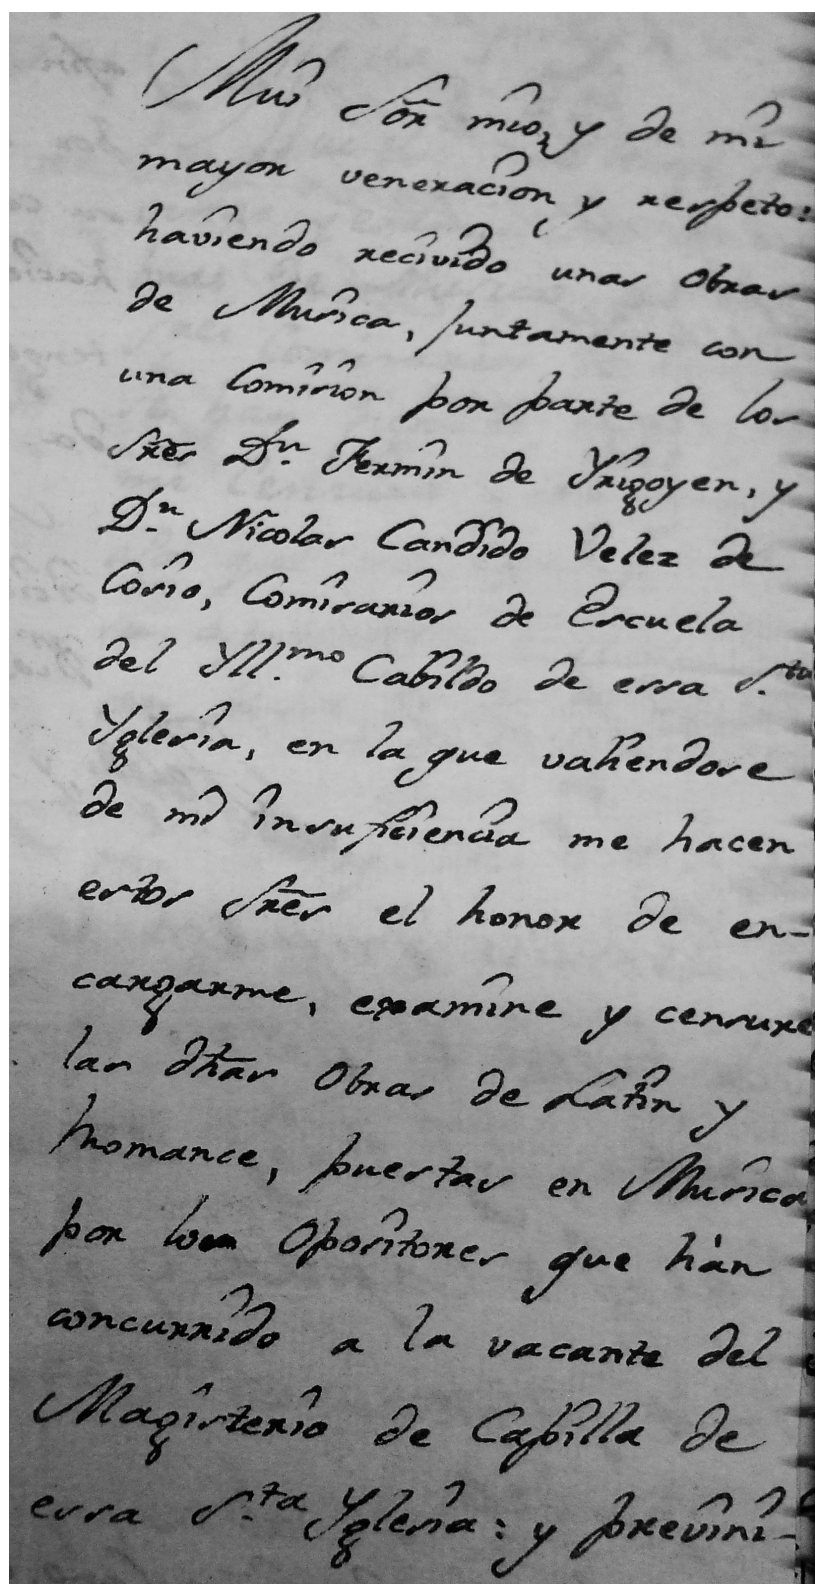 Mui Sõr mio, y de mi
mayor veneracion, y respeto:
haviendo recivido unas Obras
de Musica, juntamente con
una Comision por parte de los
Srẽs Dn. Fermin de Yrigoyen, y
Dn. Nicolas Candido Velez de
Cosio, Comisarios de Escuela
del Yll.mo Cabildo de essa S.ta
Yglesia, en la que valiendose
de mi insuficiencia me hacen
estos Srẽs el honor de en-
cargarme, examine y censure
las dhas Obras de Latin y
Romance, puestas en Musica
por los Opositores que hàn
concurrido a la vacante del
Magisterio de Capilla de
essa S.ta Yglesia: y previni-